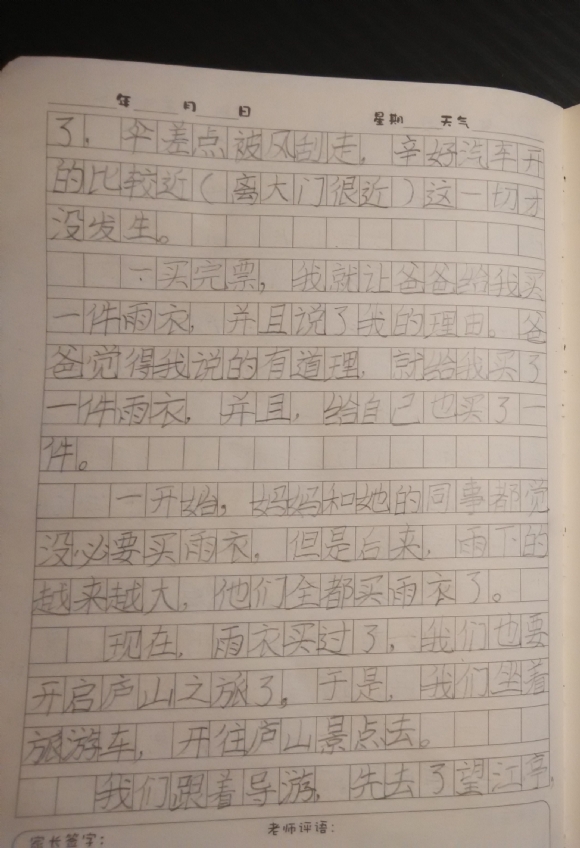 年 月 日 星期 天气
了，伞差点被风刮走，辛好汽车开
的比较近（离大门很近）这一切才
没发生。
一买完票，我就让爸爸给我买
一件雨衣，并且说了我的理由。爸
爸觉得我说的有道理，就给我买了
一件雨衣，并且，给自己也买了一
件。
一开始，妈妈和她的同事都觉
没必要买雨衣，但是后来，雨下的
越来越大，他们全都买雨衣了。
现在，雨衣买过了，我们也要
开启庐山之旅了。于是，我们坐着
旅游车，开往庐山景点去。
我们跟着导游，先去了望江亭，
家长签字： 老师评语：